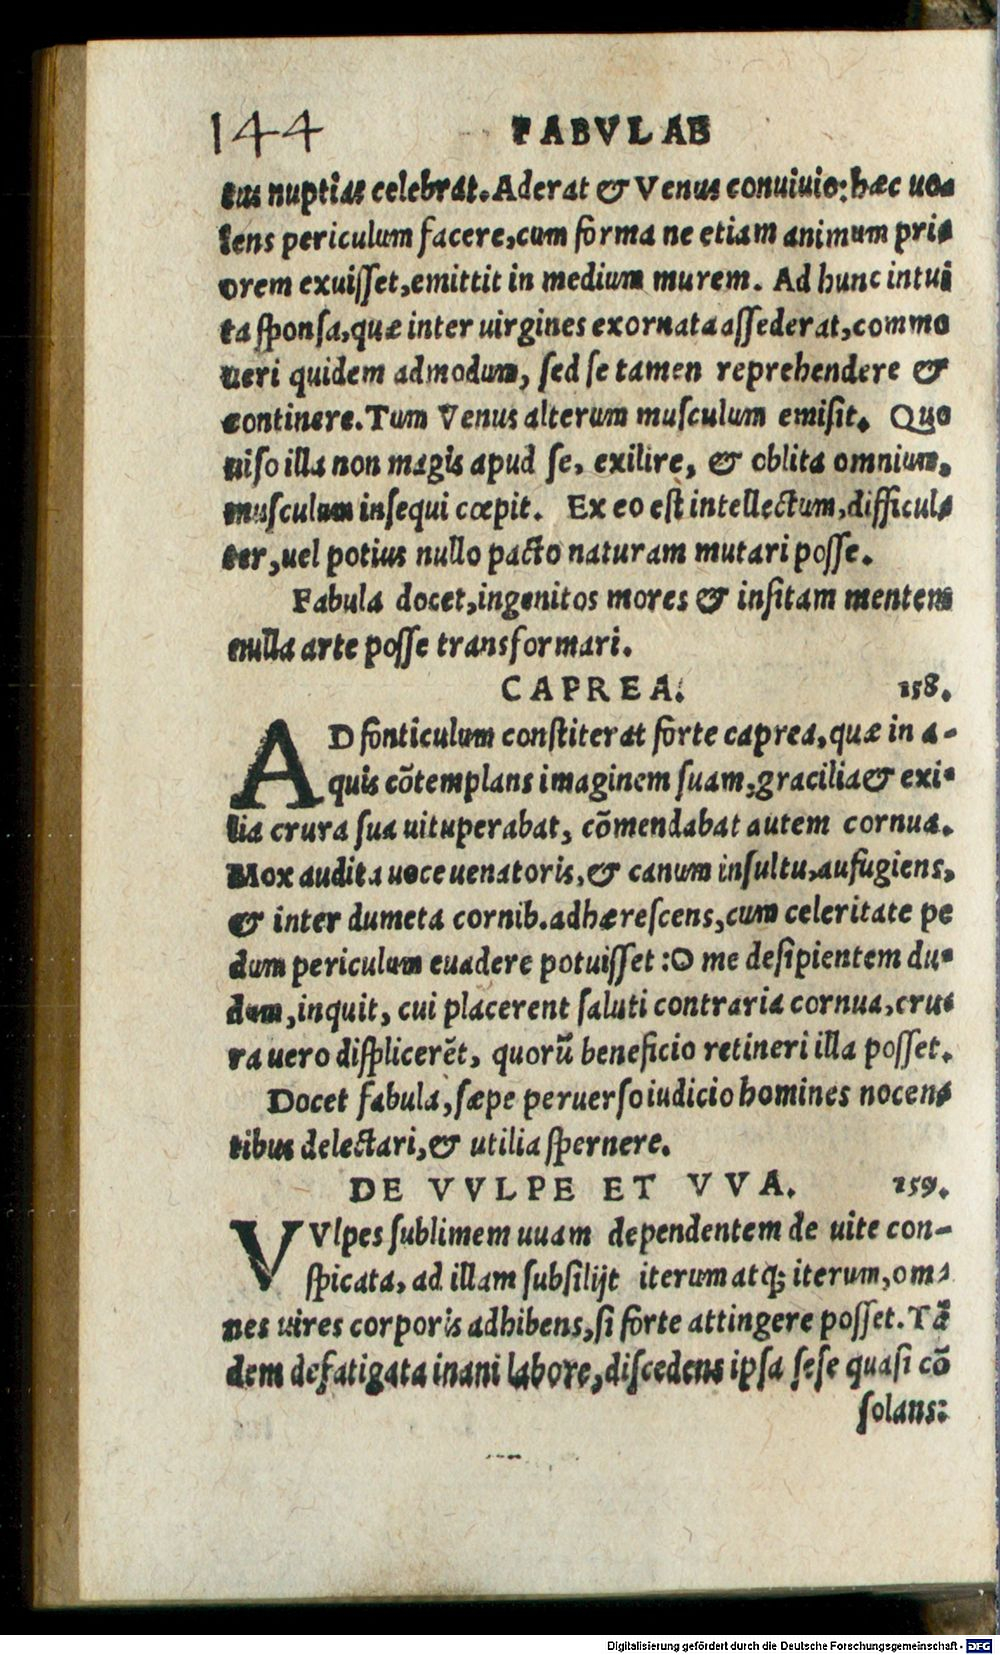 144 FABVLAE
eius nuptias celebrat. Aderat & Venus conuiuio: hæc uo-
lens periculum facere, cum forma ne etiam animum pri-
orem exuisset, emittit in medium murem. Ad hunc intui
ta sponsa, quæ inter uirgines exornata assederat, commo
ueri quidem admodum, sed se tamen reprehendere &
continere. Tum Venus alterum musculum emisit. Quo
uiso illa non magis apud se, exilire, & oblita omnium,
musculum insequi cœpit. Ex eo est intellectum, difficul-
ter, uel potius nullo pacto naturam mutari posse.
Fabula docet, ingenitos mores & insitam mentem
nulla arte posse transformari.
CAPREA. 158.
AD fonticulum constiterat forte caprea, quæ in a-
quis cõtemplans imaginem suam, gracilia & exi-
lia crura sua uituperabat, cõmendabat autem cornua.
Mox audita uoce uenatoris, & canum insultu, aufugiens,
& inter dumeta cornib. adhærescens, cum celeritate pe
dum periculum euadere potuisset: O me desipientem du-
dum, inquit, cui placerent saluti contraria cornua, cru-
ra uero displicerẽt, quorũ beneficio retineri illa posset.
Docet fabula, sæpe peruerso iudicio homines nocen-
tibus delectari, & utilia spernere.
DE VVLPE ET VVA. 159.
VVlpes sublimem uuam dependentem de uite con-
spicata, ad illam subsilijt iterum atq; iterum, om-
nes uires corporis adhibens, si forte attingere posset. Tã
dem defatigata inani labore, discedens ipsa sese quasi cõ
solans:
Digitalisierung gefördert durch die Deutsche Forschungsgemeinschaft - DFG